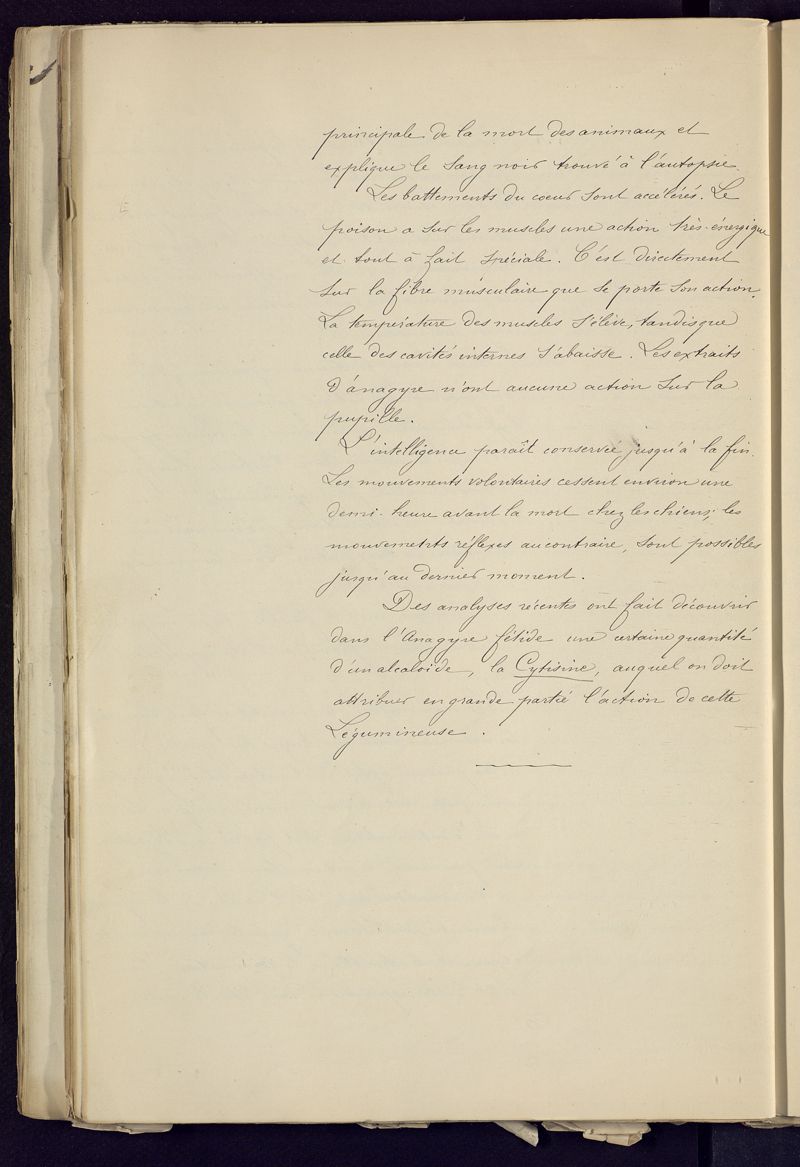 principale de la mort des animaux et
explique le sang noir trouvé à l'autopsie.
Les battements du coeur sont accélérés. Le
poison a sur les muscles une action très-énergique
et tout à fait spéciale. C'est directement
sur la fibre musculaire que se porte son action.
La température des muscles s'élève, tandisque
celle des cavités internes s'abaisse. Les extraits
d'anagyre n'ont aucune action sur la
pupille.
L'intelligence paraît conservée jusqu'à la fin.
Les mouvements volontaires cessent environ une
demi-heure avant la mort chez les chiens; les
mouvements réflexes au contraire, sont possibles
jusqu'au dernier moment.
Des analyses récentes ont fait découvrir
dans l'Anagyre fétide une certaine quantité
d'un alcaloïde, la Cytisine, auquel on doit
attribuer en grande partie l'action de cette
Légumineuse.